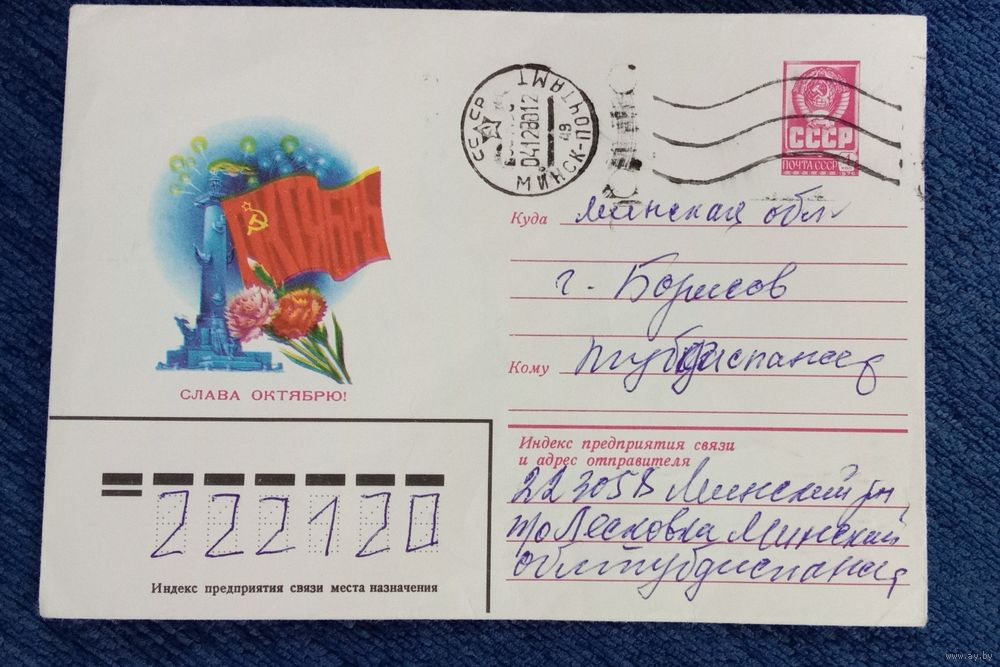 СССР
ПОЧТА СССР
МИНСК-ПОЧТАМТ
04128012
Куда Минская обл
г. Борисов
Кому тубдиспансер
СЛАВА ОКТЯБРЮ!
Индекс предприятия связи
и адрес отправителя
Минский рн
п/о Лесковка Минский
облтубдиспансер
222120
Индекс предприятия связи места назначения
www.ay.by